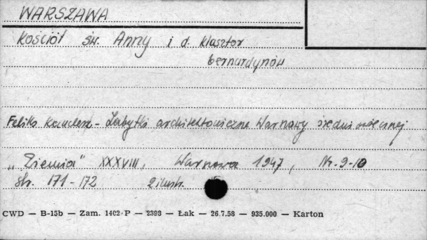 WARSZAWA
Kościół św. Anny i d. klasztor
bernardynów
Feliks - Zabytki architektoniczne Warszawy średniowiecznej
„Ziemia" XXXVIII, Warszawa 1947, Nr. 9-10
str. 171-172 2 ilustr.
CWD — B-15b — Zam. 1402-P — 2303 — Łak — 26.7.58 — 935.000 — Karton